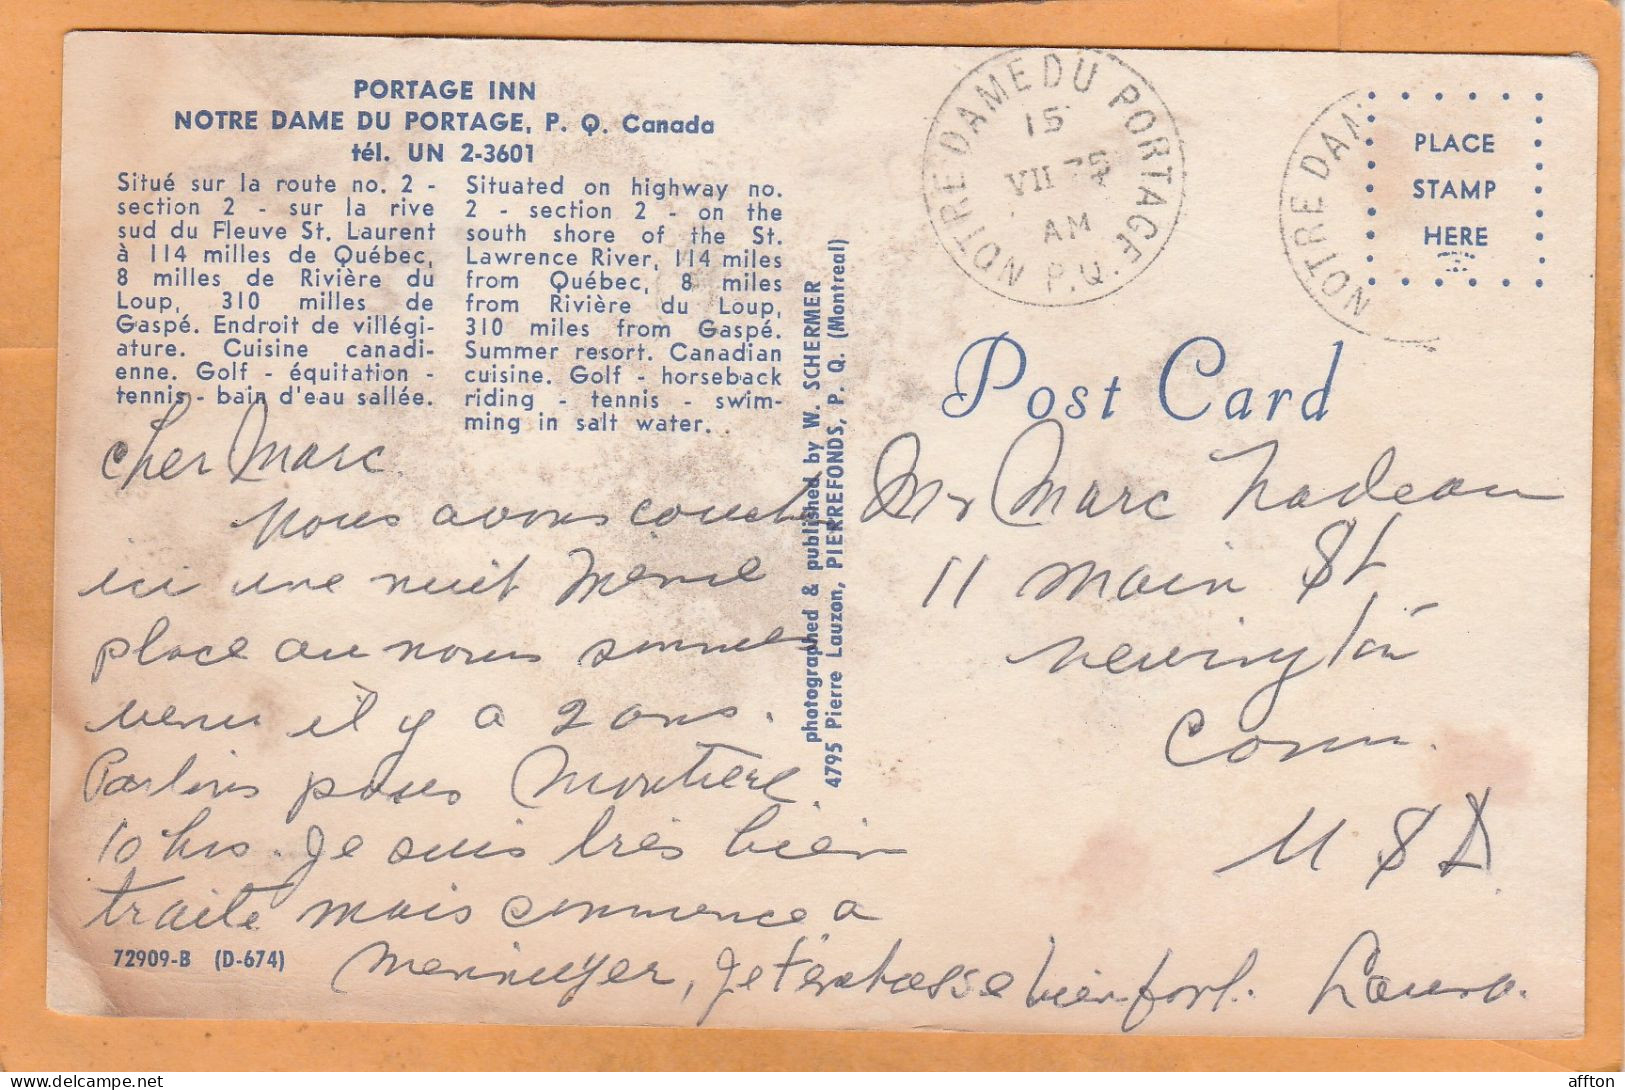 PORTAGE INN
NOTRE DAME DU PORTAGE, P. Q. Canada
tél. UN 2-3601
Situé sur la route no. 2 -
section 2 - sur la rive
sud du Fleuve St. Laurent
à 114 milles de Québec,
8 milles de Rivière du
Loup, 310 milles de
Gaspé. Endroit de villégi-
ature. Cuisine canadi-
enne. Golf - équitation -
tennis - bain d'eau sallée.
Situated on highway no.
2 - section 2 - on the
south shore of the St.
Lawrence River, 114 miles
from Québec, 8 miles
from Rivière du Loup,
310 miles from Gaspé.
Summer resort. Canadian
cuisine. Golf - horseback
riding - tennis - swim-
ming in salt water.
cher Marc.
Nous avons couché
ici une nuit Meme
place ou nous sommes
venu il y a 2 ans.
Partons pour
10 hrs. Je suis très bien
traité mais commence a
m'ennuyer, Je t'embrasse bien fort. Laura.
72909-B (D-674)
photographed & published by W. SCHERMER
4795 Pierre Lauzon, PIERREFONDS, P. Q. (Montreal)
NOTRE DAME DU PORTAGE
15
VII
AM
P.Q.
NOTRE DAM
PLACE
STAMP
HERE
Post Card
Mr Marc Nadeau
11 Main St
Newington
Conn.
U S A
affton